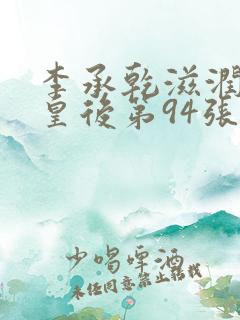 李承乾滋潤
皇後第94張
少喝啤酒
未經同意禁止轉載